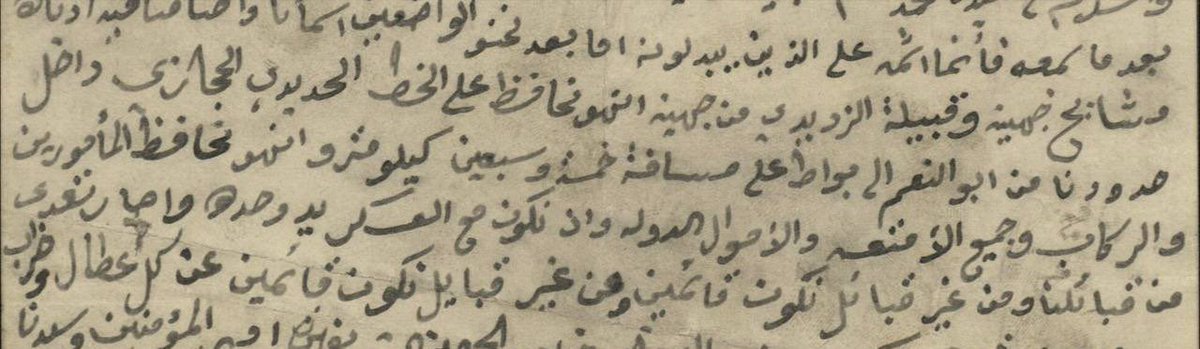 بعد ما سمعه فأنما اثمه على الذين يبدلونه اما بعد نحنو الواضعين اسمأنا واختامنا فيه ادناه
مشايخ جهينه وقبيلة الزويدي من جهينه اننهو نحافظ على الخط الحديدي الحجازي داخل
حدودنا من ابو النعم الى بواط على مسافة خمسة وسبعين كيلو مترو واننهو نحافظ المأمورين
والركاب وجميع الأمتعه والأموال الدوله وان نكون مع العسكر يد وحده واصار تعدى
من قبائلنا ومن غير قبائل نكون قائمين ومن غير قبايل نكون قائمين عن كل عطال وخراب
المؤمنين وسيدنا